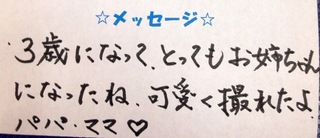 ☆メッセージ☆
3歳になって、とってもお姉ちゃん
になったね、可愛く撮れたよ
パパ・ママ♡